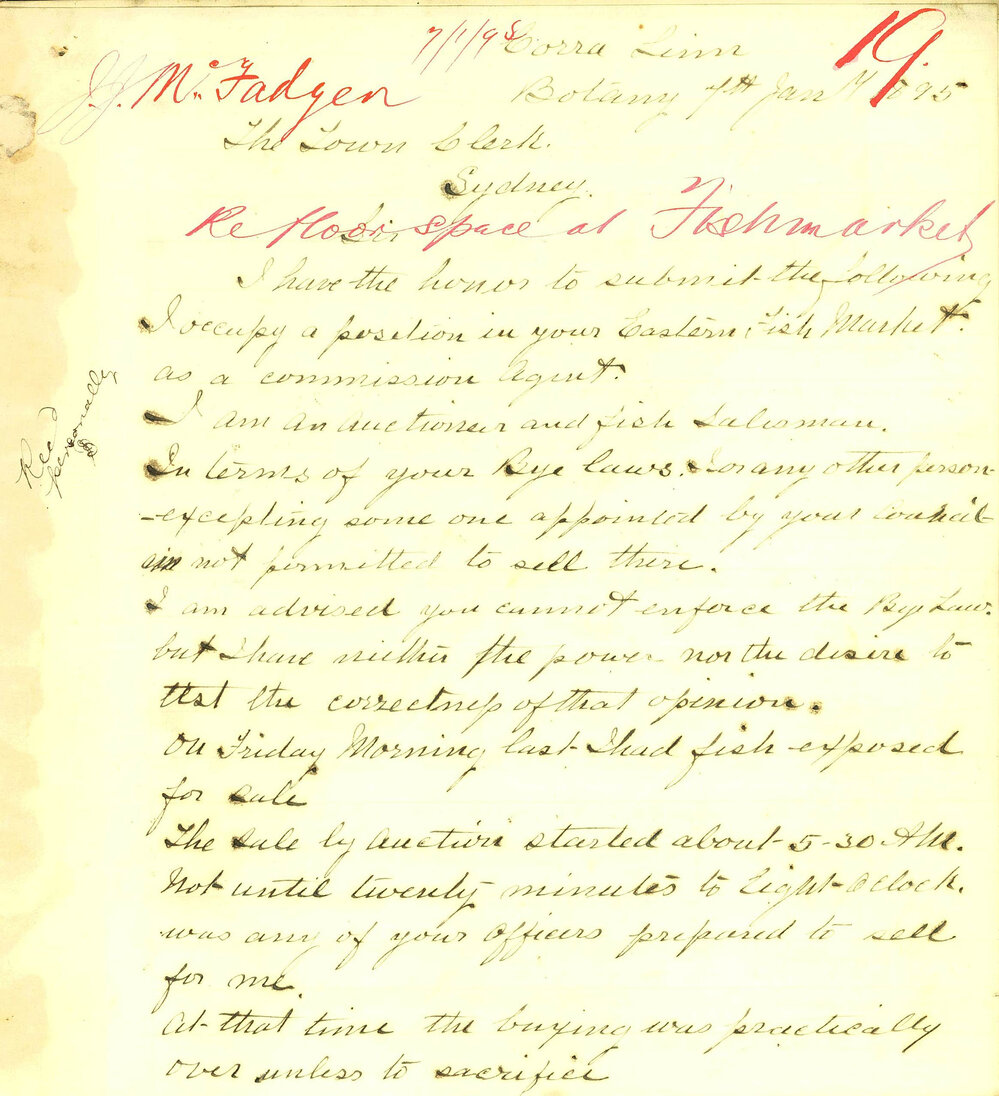 7/1/95 Corra Linn
19.
J.J. McFadyen
Botany 7th Jany 1895
The Town Clerk.
Sydney.
Re floor space at Fishmarket
Sir
I have the honor to submit the following
I occupy a position in your Eastern Fish Market.
as a commission Agent.
I am an Auctioneer and fish Salesman.
In terms of your Bye laws. I or any other person
-excepting some one appointed by your Council-
is not permitted to sell there.
I am advised you cannot enforce the Bye Law.
but I have neither the power nor the desire to
test the correctness of that opinion.
Recd
personally
On Friday Morning last I had fish exposed
for sale
The sale by Auction started about 5-30 AM.
Not until twenty minutes to Eight Oclock.
was any of your Officers prepared to sell
for me.
At that time the buying was practically
over unless to sacrifice